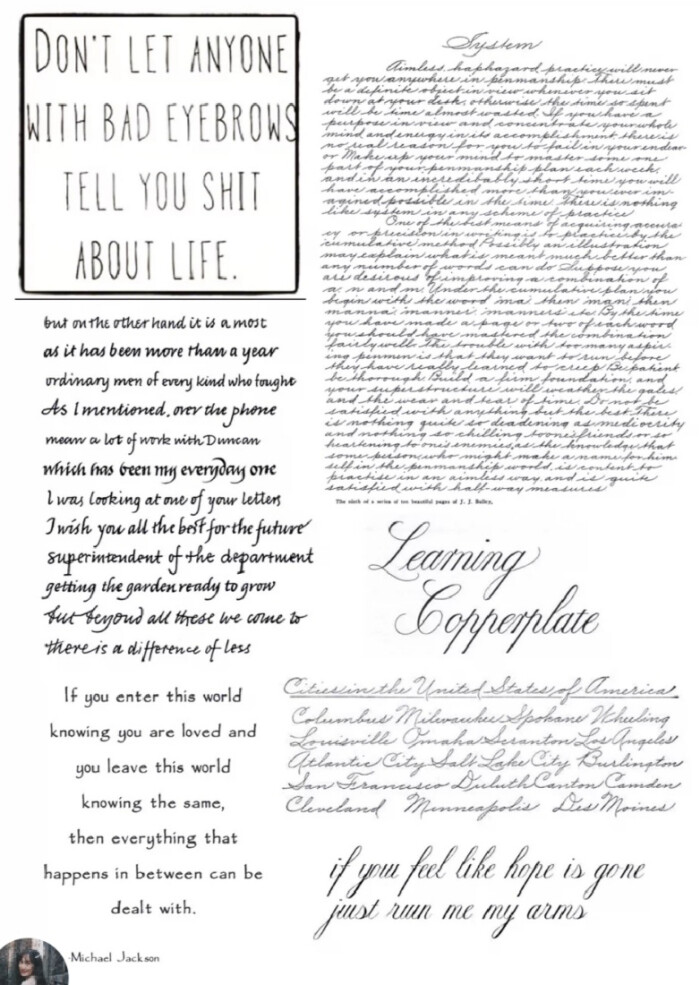 DON'T LET ANYONE
WITH BAD EYEBROWS
TELL YOU SHIT
ABOUT LIFE.
but on the other hand it is a most
as it has been more than a year
ordinary men of every kind who fought
As I mentioned, over the phone
mean a lot of work with Duncan
which has been my everyday one
I was looking at one of your letters
I wish you all the best for the future
superintendent of the department
getting the garden ready to grow
but beyond all these we come to
there is a difference of less
If you enter this world
knowing you are loved and
you leave this world
knowing the same,
then everything that
happens in between can be
dealt with.
-Michael Jackson
System
Aimless, haphazard practice will never
get you anywhere in penmanship. There must
be a definite object in view whenever you sit
down at your desk, otherwise the time so spent
will be time almost wasted. If you have a
purpose in view and concentrate your whole
mind and energy in its accomplishment there is
no real reason for you to fail in your endeav
or Make up your mind to master some one
part of your penmanship plan each week,
and in an incredibly short time you will
have accomplished more than you ever im-
agined possible in the time. There is nothing
like system in any scheme of practice
One of the best means of acquiring accura
cy or precision in writing is to practice by the
cumulative method Possibly an illustration
may explain what is meant much better than
any number of words can do Suppose you
are desirous of improving a combination of
a, n and m. Under the cumulative plan you
begin with the word 'ma' then 'man' then
'manna' 'manner' 'manners' etc By the time
you have made a page or two of each word
you should have mastered the combination
fairly well The trouble with too many aspir-
ing penmen is that they want to run before
they have really learned to creep Be patient
be thorough Build a firm foundation, and
your superstructure will weather the gales,
and the wear and tear of time. Do not be
satisfied with anything but the best There
is nothing quite so deadening as mediocrity
and nothing so chilling to one's friends or so
heartening to one's enemies, as the knowledge that
some person, who might make a name for him
self in the penmanship world, is content to
practise in an aimless way, and is quite
satisfied with half-way measures
The ninth of a series of ten beautiful pages of J. J. Bailey.
Learning
Copperplate
Cities in the United States of America
Columbus Milwaukee Spokane Wheeling
Louisville Omaha Scranton Los Angeles
Atlantic City Salt Lake City Burlington
San Francisco Duluth Canton Camden
Cleveland Minneapolis Des Moines
if you feel like hope is gone
just run me my arms